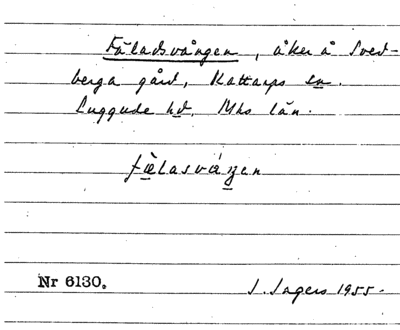 Fäladsvången, åker å Sved-
berga gård, Kattarps sn.
Luggude hd. Mhs län.
fä̀lasváŋen
Nr 6130.
J. Sagers 1955.